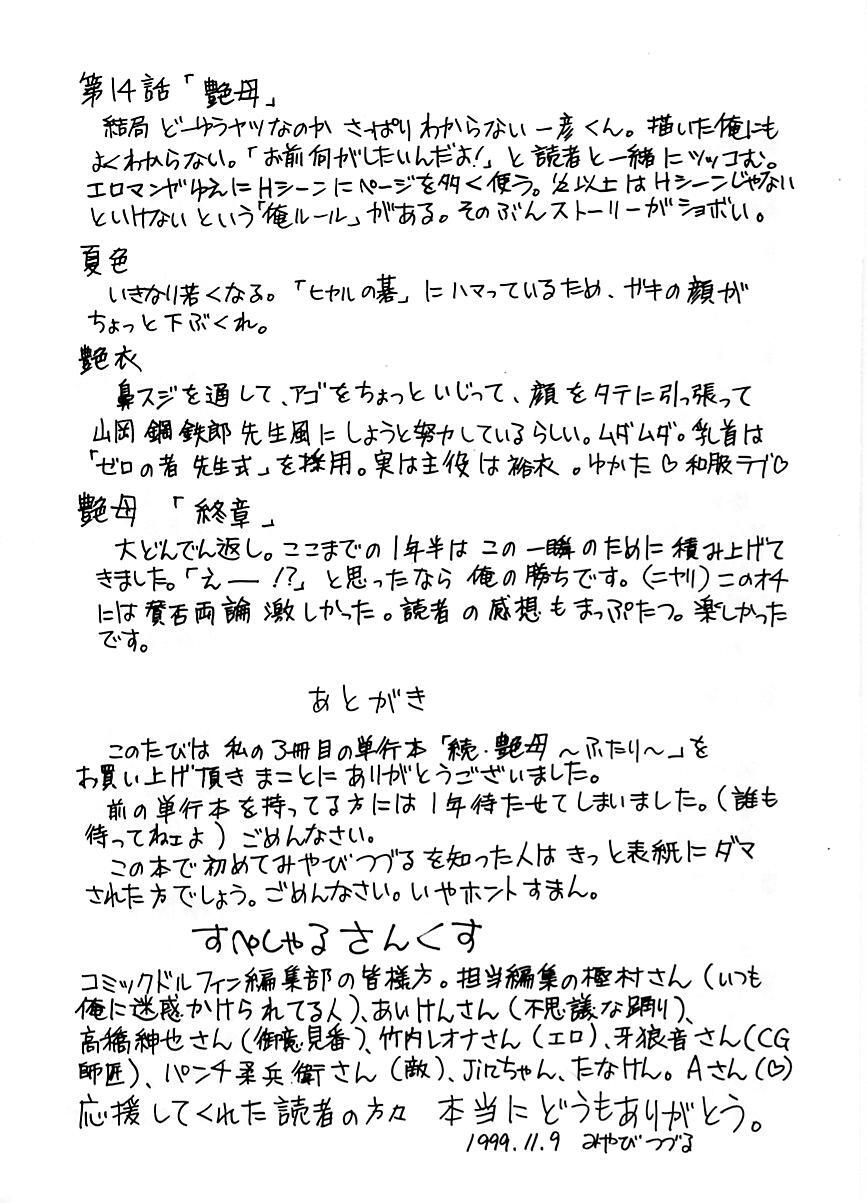 第14話「艶母」
結局 どーゆうヤツなのか さっぱり わからない 一彦くん。描いた俺にも
よくわからない。「お前何がしたいんだよ!」と読者と一緒にツッコむ。
エロマンガゆえにHシーンにページを多く使う。½以上はHシーンじゃない
といけないという「俺ルール」がある。そのぶんストーリーがショボい。
夏色
いきなり若くなる。「ヒカルの碁」にハマっているため、ガキの顔が
ちょっと下ぶくれ。
艶衣
鼻スジを通して、アゴをちょっといじって、顔をタテに引っ張って
山岡鋼鉄郎先生風にしようと努力しているらしい。ムダムダ。乳首は
「ゼロの者先生式」を採用。実は主役は裕衣。ゆかた♡和服ラブ♡
艶母「終章」
大どんでん返し。ここまでの1年半はこの一瞬のために積み上げて
きました。「えー!?」と思ったなら俺の勝ちです。(ニヤリ)このオチ
には賛否両論激しかった。読者の感想もまっぷたつ。楽しかった
です。
あとがき
このたびは私の3冊目の単行本「続・艶母~ふたり~」を
お買い上げ頂きまことにありがとうございました。
前の単行本を持ってる方には1年待たせてしまいました。(誰も
待ってねェよ)ごめんなさい。
この本で初めてみやびつづるを知った人はきっと表紙にダマ
された方でしょう。ごめんなさい。いやホントすまん。
すぺしゃるさんくす
コミックドルフィン編集部の皆様方。担当編集の極村さん(いつも
俺に迷惑かけられてる人)、あいけんさん(不思議な踊り)、
高橋紳也さん(御意見番)、竹内レオナさん(エロ)、牙狼音さん(CG
師匠)、パンチ柔兵衛さん(敵)、Jinちゃん、たなけん。Aさん(♡)
応援してくれた読者の方々 本当にどうもありがとう。
1999.11.9 みやびつづる